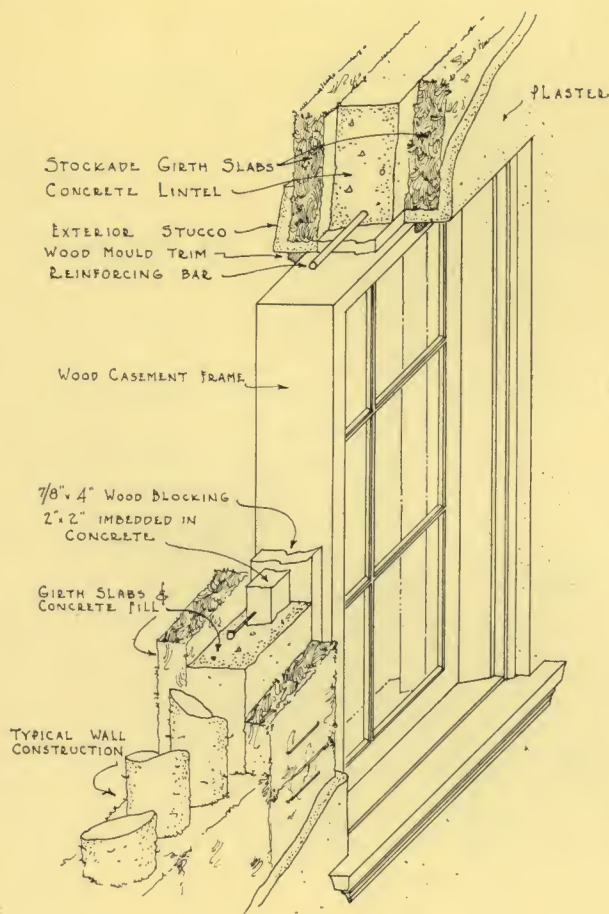 PLASTER
STOCKADE GIRTH SLABS
CONCRETE LINTEL
EXTERIOR STUCCO
WOOD MOULD TRIM
REINFORCING BAR
WOOD CASEMENT FRAME
7/8" x 4" WOOD BLOCKING
2" x 2" IMBEDDED IN
CONCRETE
GIRTH SLABS &
CONCRETE FILL
TYPICAL WALL
CONSTRUCTION